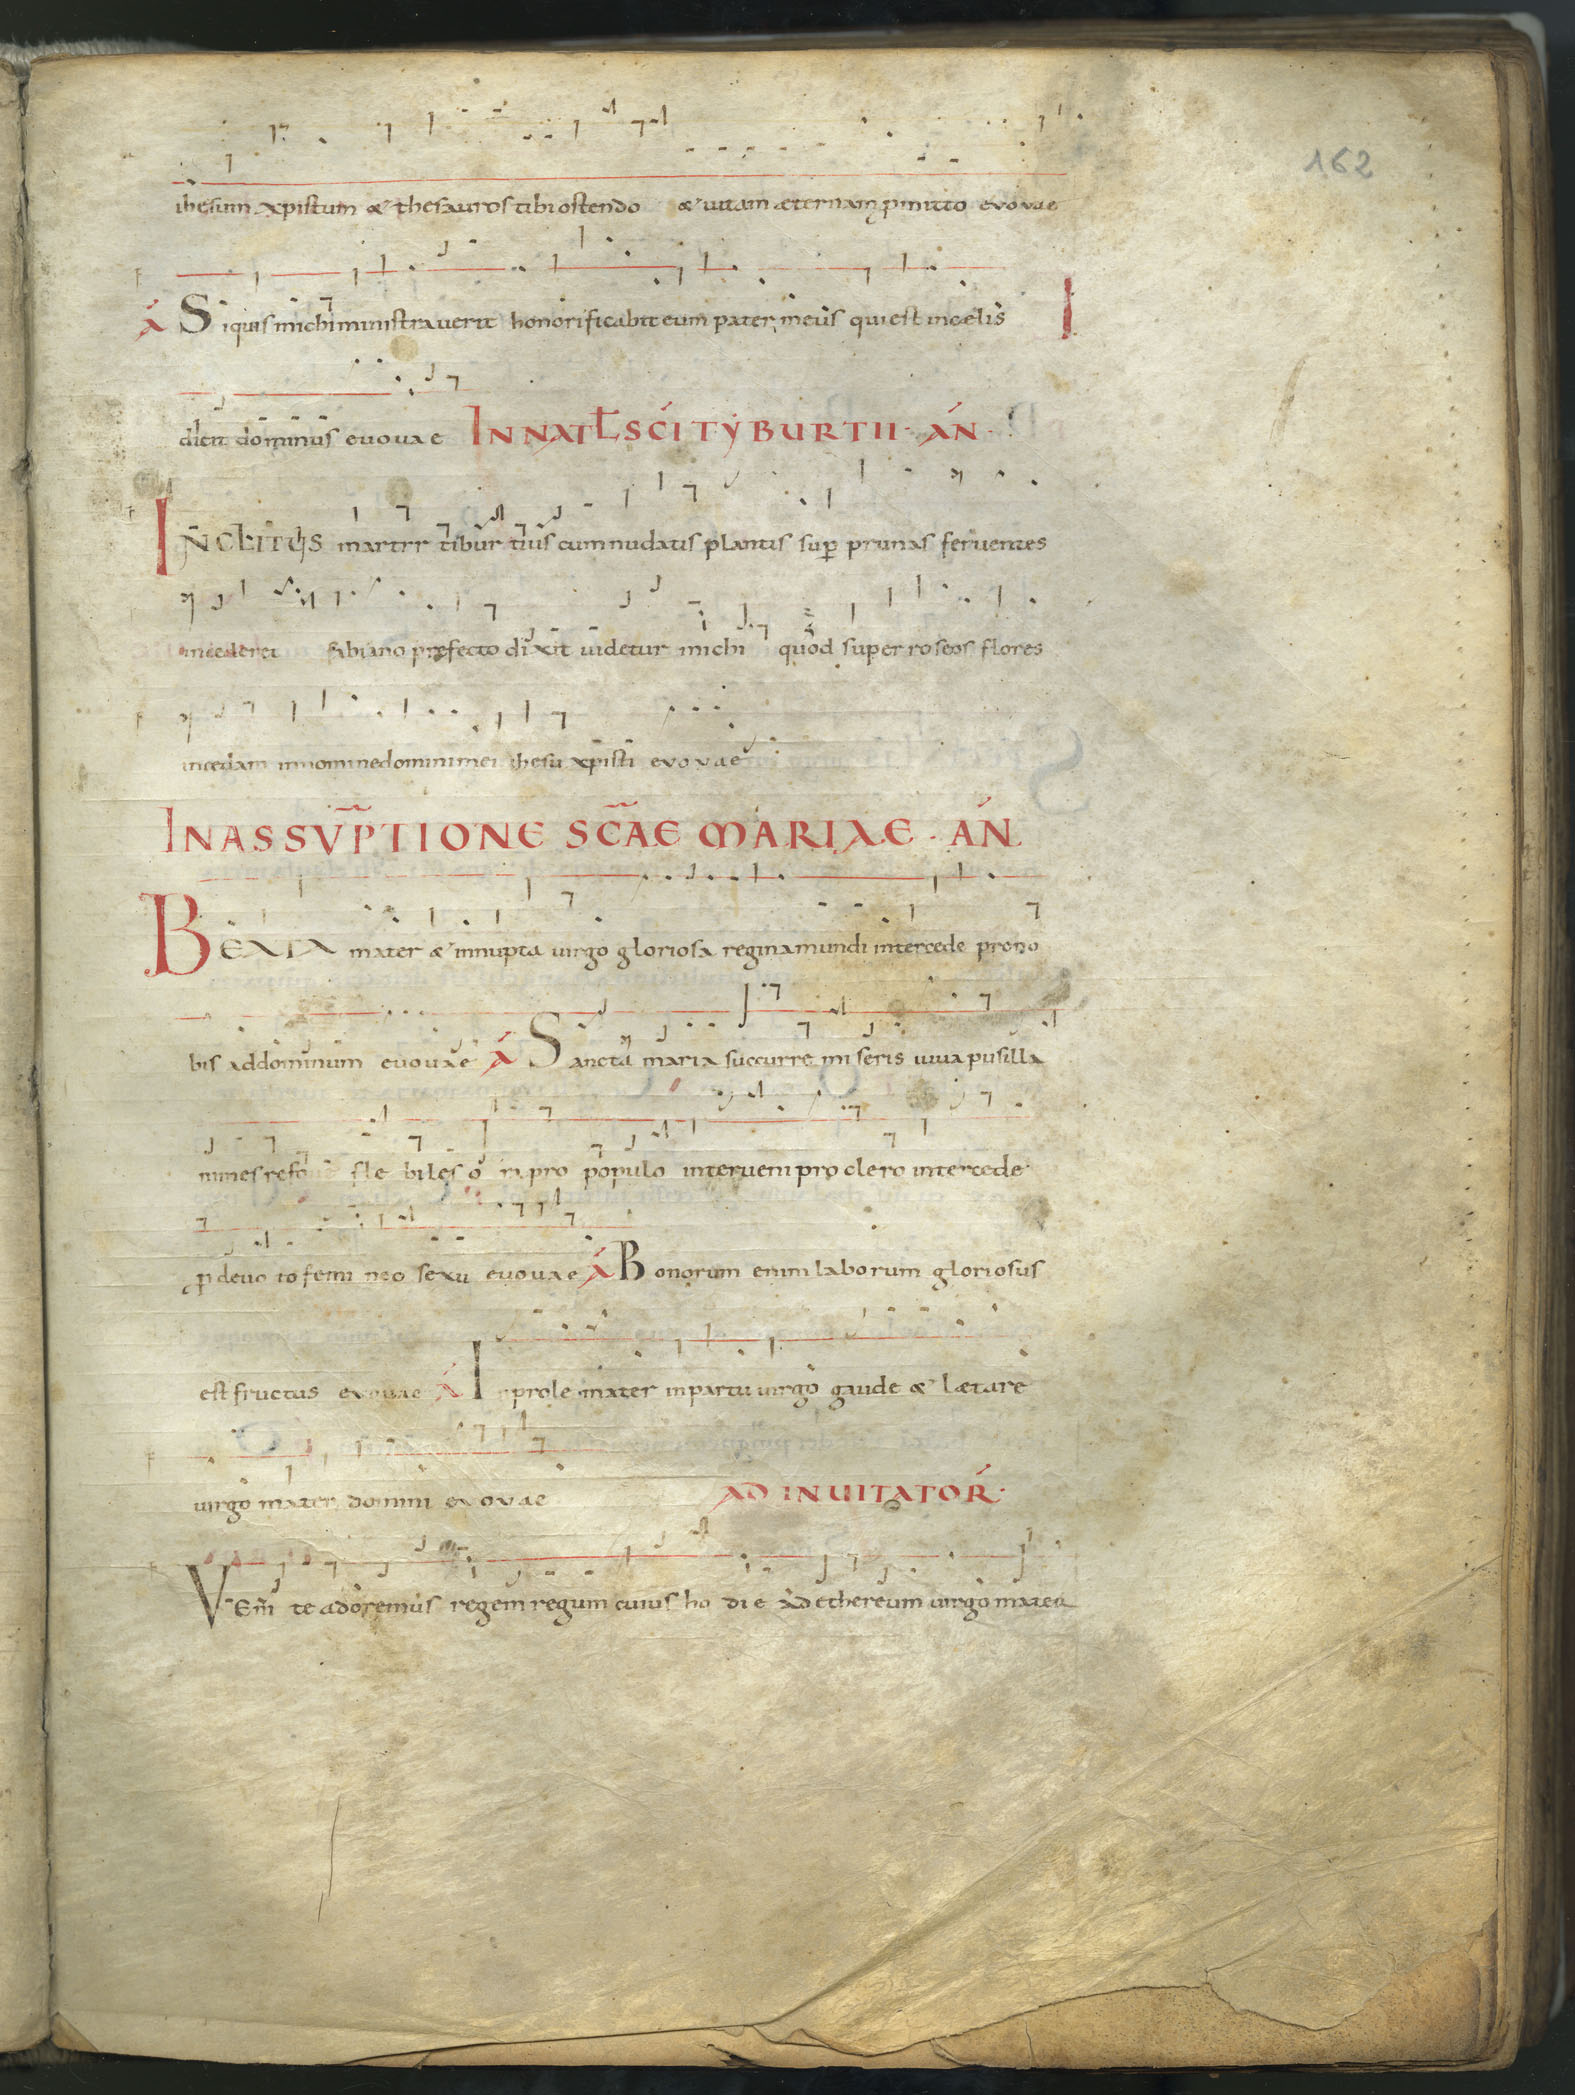 162
ihesum xpistum & thesauros tibi ostendo & uitam æternam pmitto evovae
Á Siquis michi ministraverit honorificabit eum pater meus qui est in celis
dicit dominus euouae IN NATL SCI TYBURTII · AN ·
INCLITUS martir tiburtius cum nudatis plantis sup prunas feruentes
incederet fabiano prefecto dixit uidetur michi quod super roseos flores
incedam in nomine domini mei ihesu xpisti evovae
IN ASSVPTIONE SCAE MARIAE · AN
BEATA mater & innupta uirgo gloriosa regina mundi intercede pro no
bis ad dominum euouae Á Sancta maria succurre miseris iuua pusilla
nimes refo flebiles ora pro populo interueni pro clero intercede
p deuoto femineo sexu euouae Á Bonorum enim laborum gloriosus
est fructus evouae Á In prole mater in partu uirgo gaude & lætare
uirgo mater domini evovae AD INUITATOR ·
VEni te adoremus regem regum cuius hodie ad ethereum uirgo mater